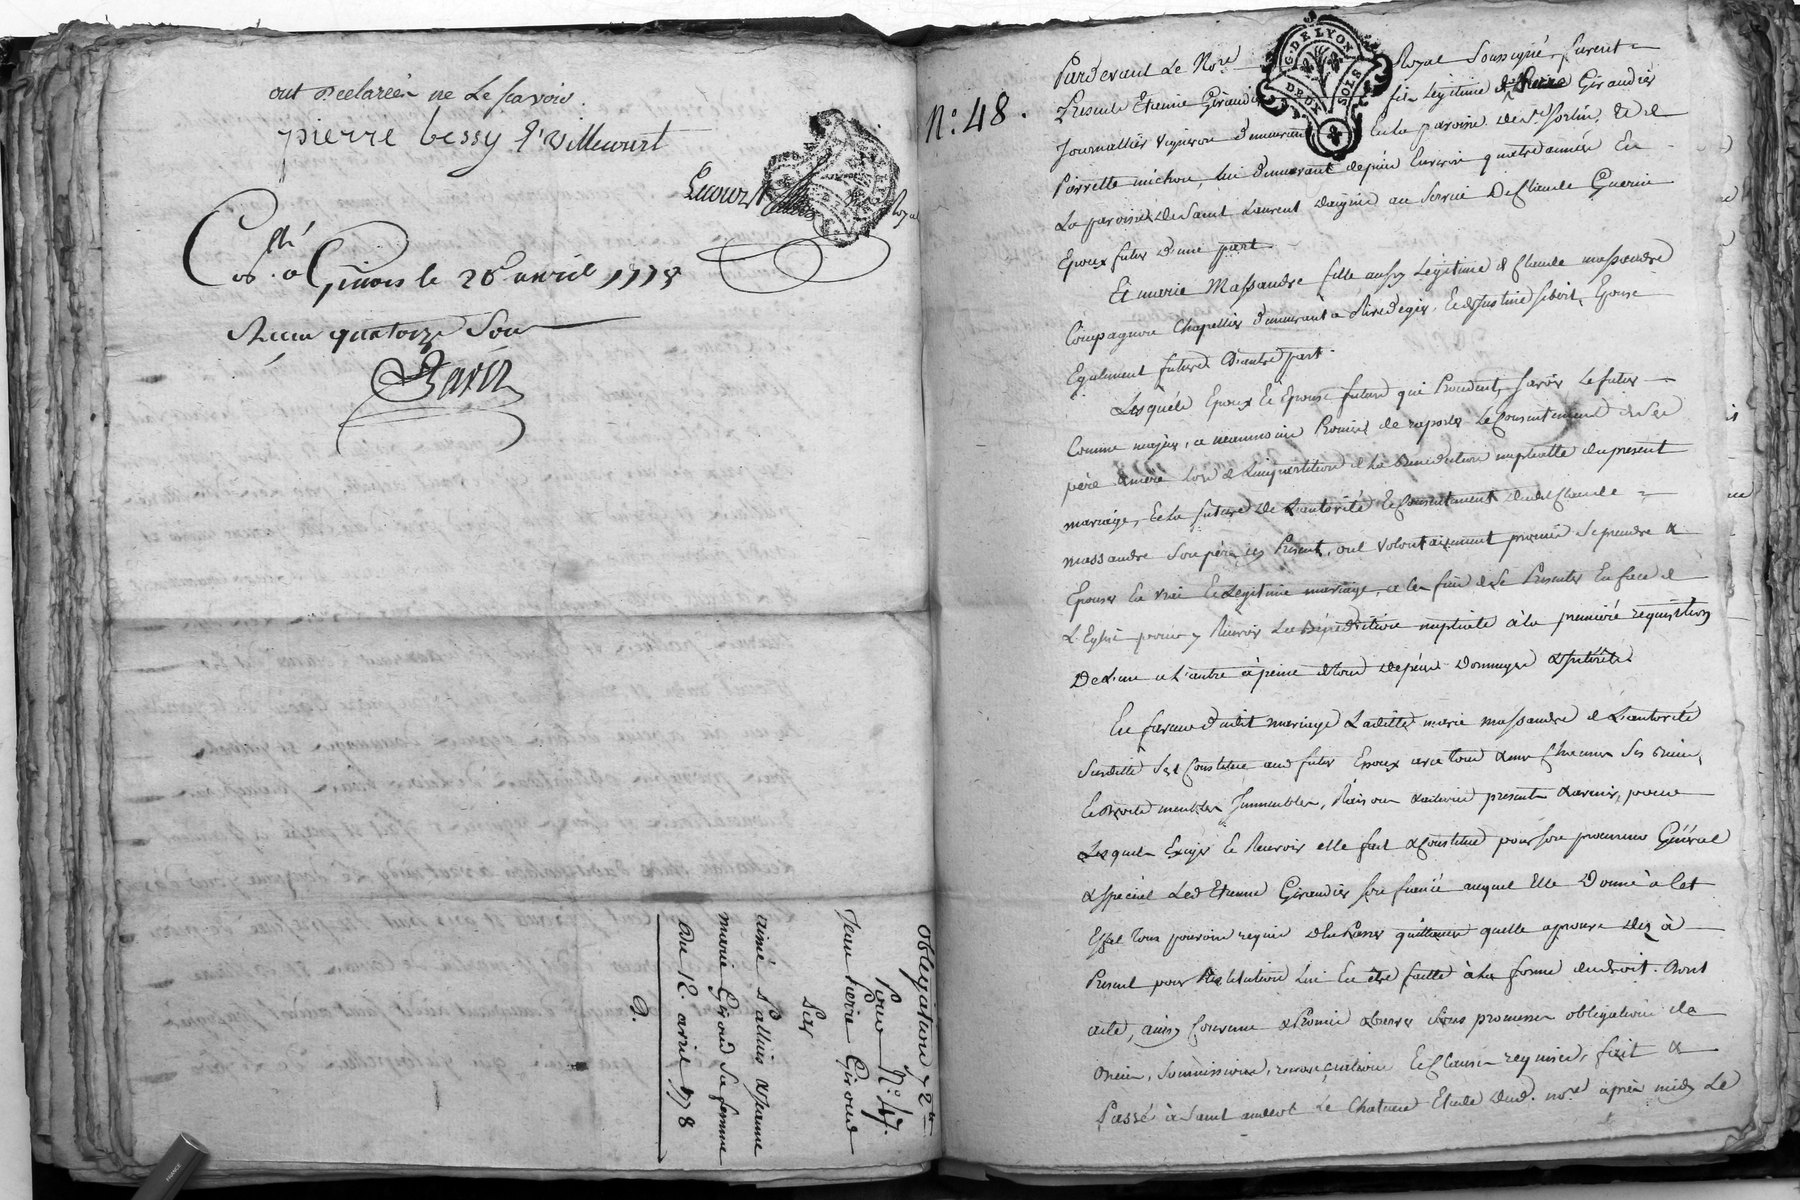 ont Declarées ne Le scavoir.
pierre bessy d'Villecourt
Lecourt
Royal
Collé
a Givors le 26 avril 1778
Receu quatorze Sous
obligation
Pour N.° 47.
Jean pierre Giroud
Sur
aimé & jeanne
marie Giroud sa femme
Du 12. avril 1778
N.° 48.
G. DE LYON
DEUX SOLS
Pardevant Le No.re Royal Soussigné, furent
Presents Etienne Giraudier fils Légitime de Pierre Giraudier
Journallier vigneron demeurant en la paroisse de St
Pierrette michon, lui demeurant depuis environ quatre années En
La paroisse de Saint Laurent Dagny au Service De Claude Guerin
Epoux futur d'une part.
Et marie Massandre fille aussy Légitime de Claude massandre
Compagnon Chapellier demeurant a Rivedegier, Epouse
Egalement future D'autre part.
Lesquels Epoux Et Epouse futurs qui Procedent, savoir Le futur
Comme majeur, a neanmoins Promis de raporter Le Consentement de ses
père & mere lors de L'impartition de La Benediction nuptialle du present
mariage, Et la future De L'autorité & Consentement dudit Claude
massandre Son père icy Present, ont volontairement promis se prendre &
Epouser En vrai & Legitime mariage, a ces fins de se Presenter En face de
L'Eglise pour y Recevoir La Bénédiction nuptiale à la premiere requisition
De L'un a L'autre à peine de tous depens Dommages & Intérêts.
En faveur dudit mariage Laditte marie massandre de L'autorité
Susditte S'est Constituée aud futur Epoux avec tous & un Chacuns Ses Biens,
& Droits meubles Immeubles, Raisons & actions present & avenir, pour
Lesquels Exiger & Recevoir elle fait & Constitue pour son procureur Général
& special Led Etienne Giraudier son fiancé auquel Elle Donne à Cet
Effet tous pouvoirs requis & En Passer quittances quelle aprouve Dez à
Present pour Restitution Lui En être faitte à La forme du droit. Dont
acte, ainsy Convenu & Promis observer sous promesses obligation de
Biens, Soumissions, renonciations & Clauses requises, fait &
Passé à Saint andeol Le Chateau Etude dud. no.re après midy Le